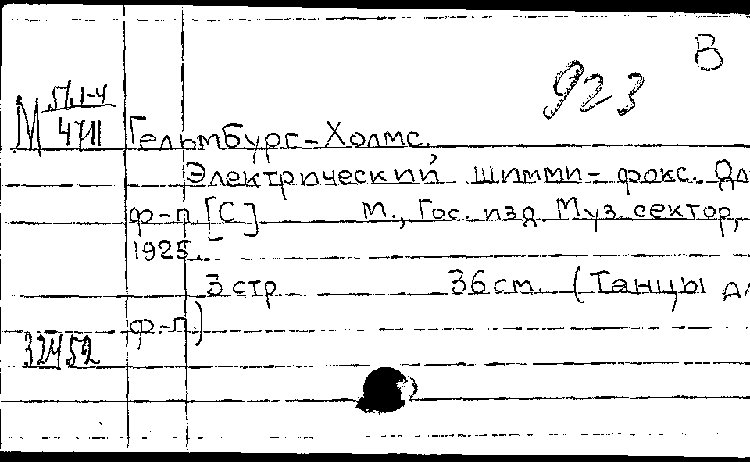 В
923
М 51.1-4
4711
Гельмбург-Холмс.
Электрический шимми-фокс. Дл
ф-п. [С] М., Гос. изд. Муз. сектор,
1925.
3 стр 36 см. (Танцы дл
ф.-п.)
32452